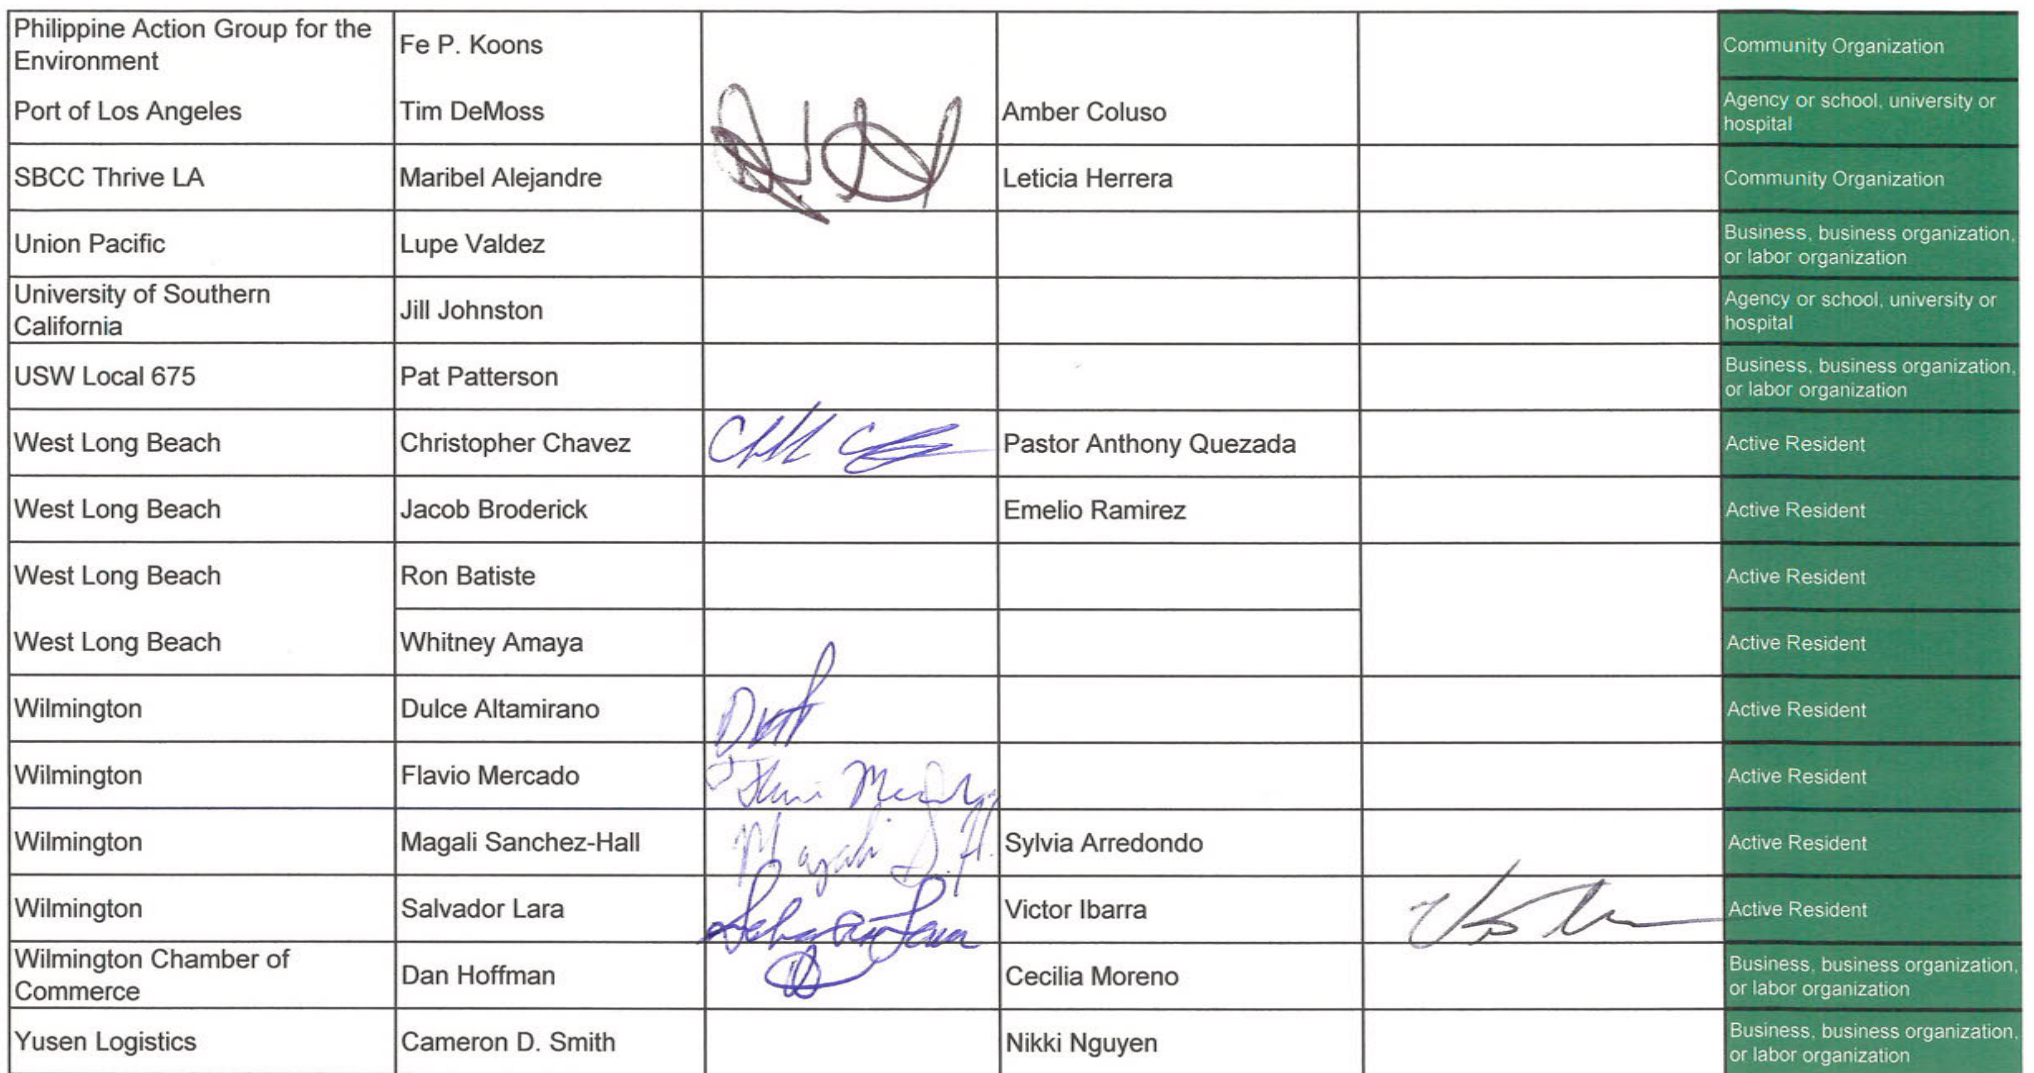 Philippine Action Group for the
Environment
Fe P. Koons
Community Organization
Port of Los Angeles
Tim DeMoss
Amber Coluso
Agency or school, university or
hospital
SBCC Thrive LA
Maribel Alejandre
Leticia Herrera
Community Organization
Union Pacific
Lupe Valdez
Business, business organization,
or labor organization
University of Southern
California
Jill Johnston
Agency or school, university or
hospital
USW Local 675
Pat Patterson
Business, business organization,
or labor organization
West Long Beach
Christopher Chavez
Pastor Anthony Quezada
Active Resident
West Long Beach
Jacob Broderick
Emelio Ramirez
Active Resident
West Long Beach
Ron Batiste
Active Resident
West Long Beach
Whitney Amaya
Active Resident
Wilmington
Dulce Altamirano
Active Resident
Wilmington
Flavio Mercado
Active Resident
Wilmington
Magali Sanchez-Hall
Magali S.H.
Sylvia Arredondo
Active Resident
Wilmington
Salvador Lara
Victor Ibarra
Active Resident
Wilmington Chamber of
Commerce
Dan Hoffman
Cecilia Moreno
Business, business organization,
or labor organization
Yusen Logistics
Cameron D. Smith
Nikki Nguyen
Business, business organization,
or labor organization